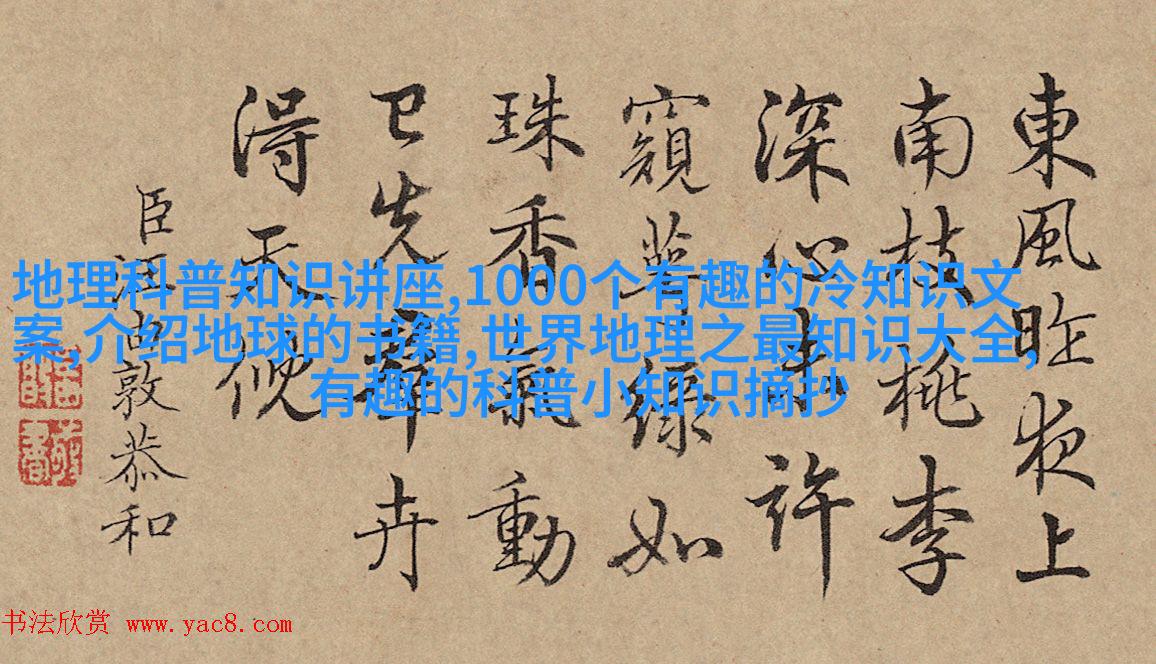 東風昨夜上
南枝桃李
深心未許
窺萼綠如
珠香氣動
已先羣卉
得天倪
臣汪由敦恭和
地理科普知识讲座,1000个有趣的冷知识文
案,介绍地球的书籍,世界地理之最知识大全,
有趣的科普小知识摘抄
书法欣赏 www.yac8.com